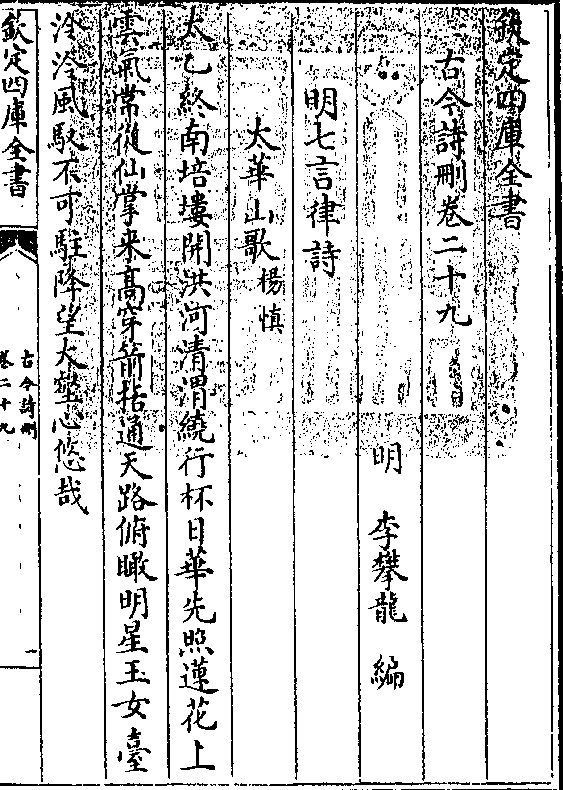 欽定四庫全書
古今詩刪卷二十九
明 李攀龍 編
明七言律詩
太華山歌 楊慎
太乙終南培塿開洪河清渭繞行杯日華先照蓮花上
雲氣常從仙掌来髙穿箭栝通天路俯瞰明星玉女臺
泠泠風馭不可駐降望大壑心悠哉
欽定四庫全書
古今詩刪
卷二十九
一